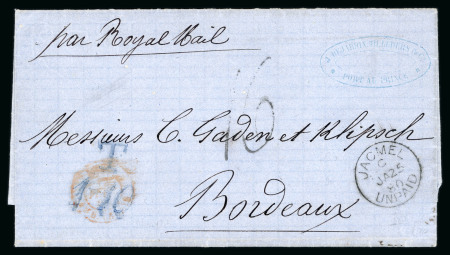 par Royal Mail
PORT AU PRINCE
16
Messieurs C. Gaden et Klipsch
JACMEL
C
JA 25
80
UNPAID
T
Bordeaux